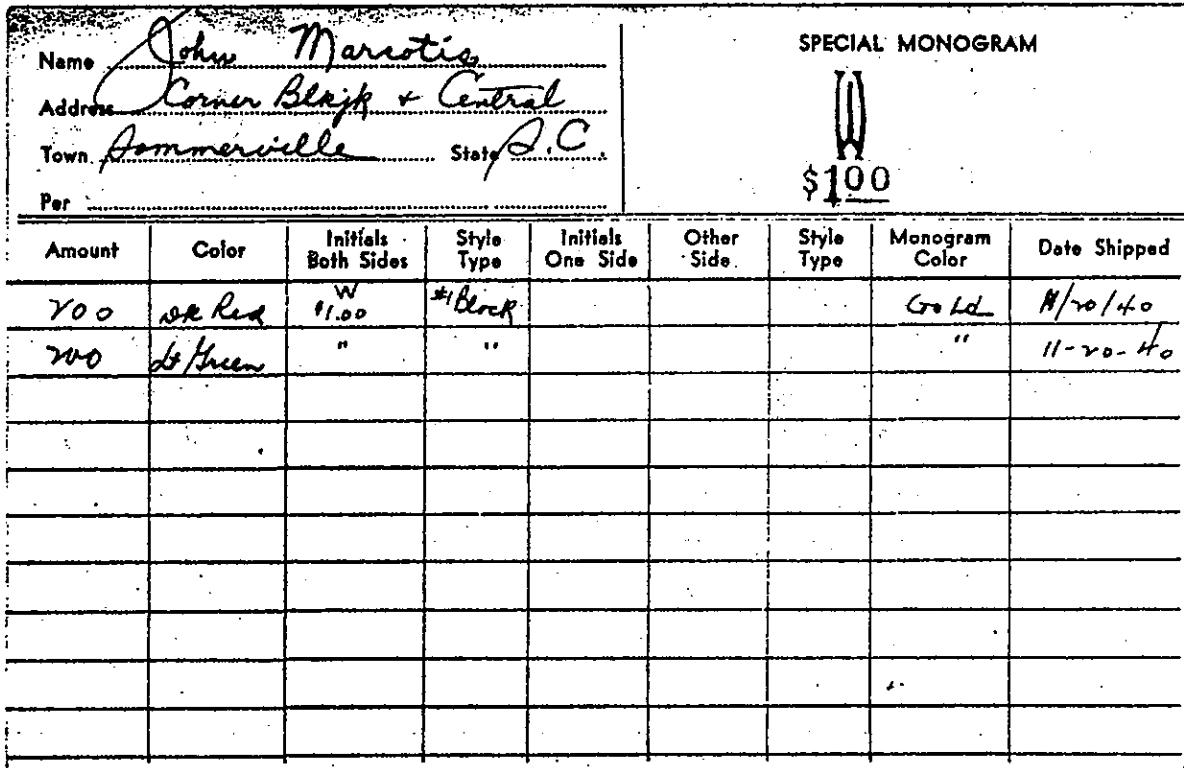 Name John Marcotis
Address Corner & Central
Town Sommerville State S.C.
Per
SPECIAL MONOGRAM
W
$1.00
Amount Color Initials Both Sides Style Type Initials One Side Other Side. Style Type Monogram Color Date Shipped
200 DK Red W $1.00 #1 Block Gold 11/20/40
200 Lt Green " " " 11-20-40